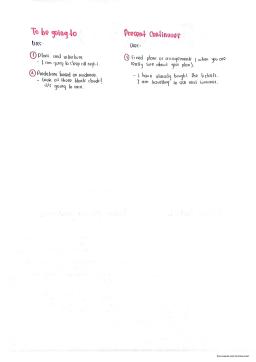 To be going to
Uses:
① Plans and intentions
- I am going to sleep all night.
② Predictions based on evidence
- Look at those black clouds!
It's going to rain.
Present Continuous
Uses:
① Fixed plans or arrangements (when you are
really sure about your plans).
- I have already bought the tickets.
I am travelling to USA next summer.